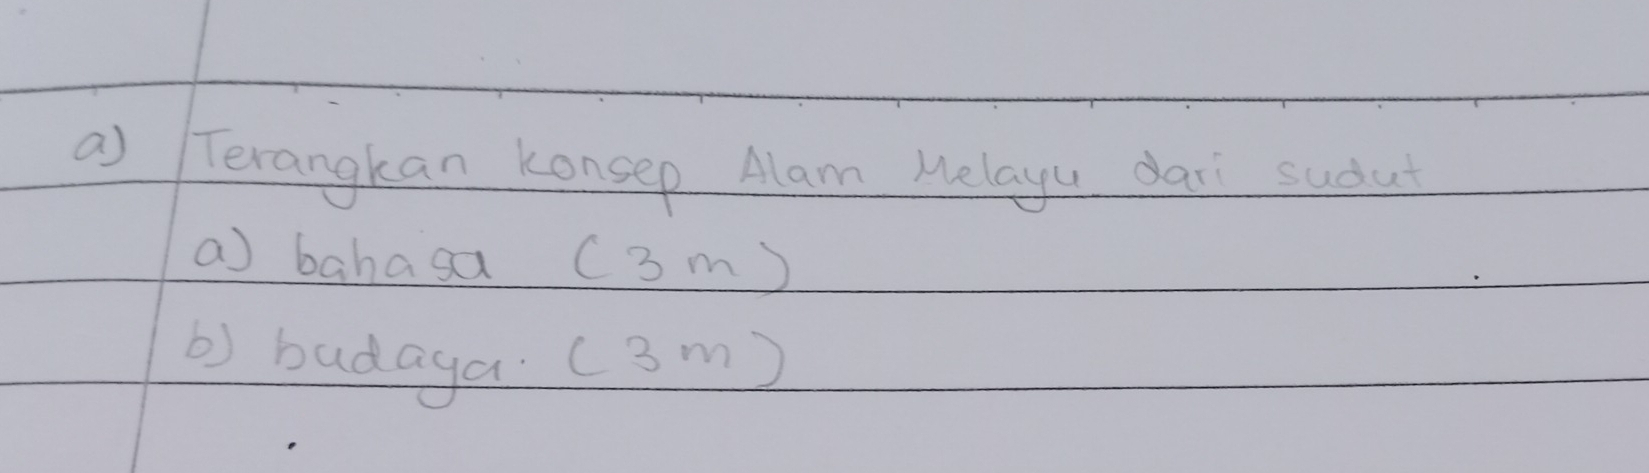 a) Terangkan konsep Alam Melayu dari sudut
a) bahasa (3 m)
b) budaya. (3 m)